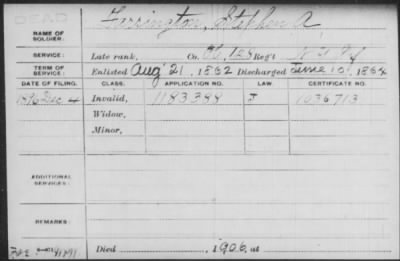 DEAD
NAME OF SOLDIER: Ferrington, Stephen A
SERVICE: Late rank, Co. 128 Reg't N.Y. Inf
TERM OF SERVICE: Enlisted Aug 21, 1862 Discharged June 10, 1864
DATE OF FILING. CLASS. APPLICATION NO. LAW. CERTIFICATE NO.
1896 Dec. 4 Invalid, 1183388 J 1036713
Widow,
Minor,
ADDITIONAL SERVICES:
REMARKS:
Died 1906, at